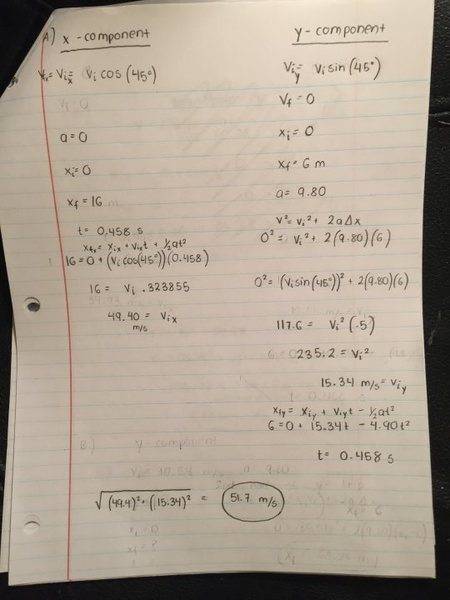 A) x - component
Vfx = Vix = Vi cos (45°)
a = 0
xi = 0
xf = 16 m
t = 0.458 s
xfx = xix + vixt + ½at²
16 = 0 + (Vi cos(45°))(0.458)
16 = Vi .323855
49.40 m/s = Vix
y - component
Viy = Vi sin (45°)
Vf = 0
xi = 0
xf = 6 m
a = 9.80
v² = vi² + 2aΔx
0² = vi² + 2(9.80)(6)
0² = (Visin(45°))² + 2(9.80)(6)
117.6 = Vi² (.5)
235.2 = Vi²
15.34 m/s = Viy
xfy = xiy + viyt - ½at²
6 = 0 + 15.34t - 4.90t²
t = 0.458 s
√(49.4)² + (15.34)² = 51.7 m/s
B.) y - component